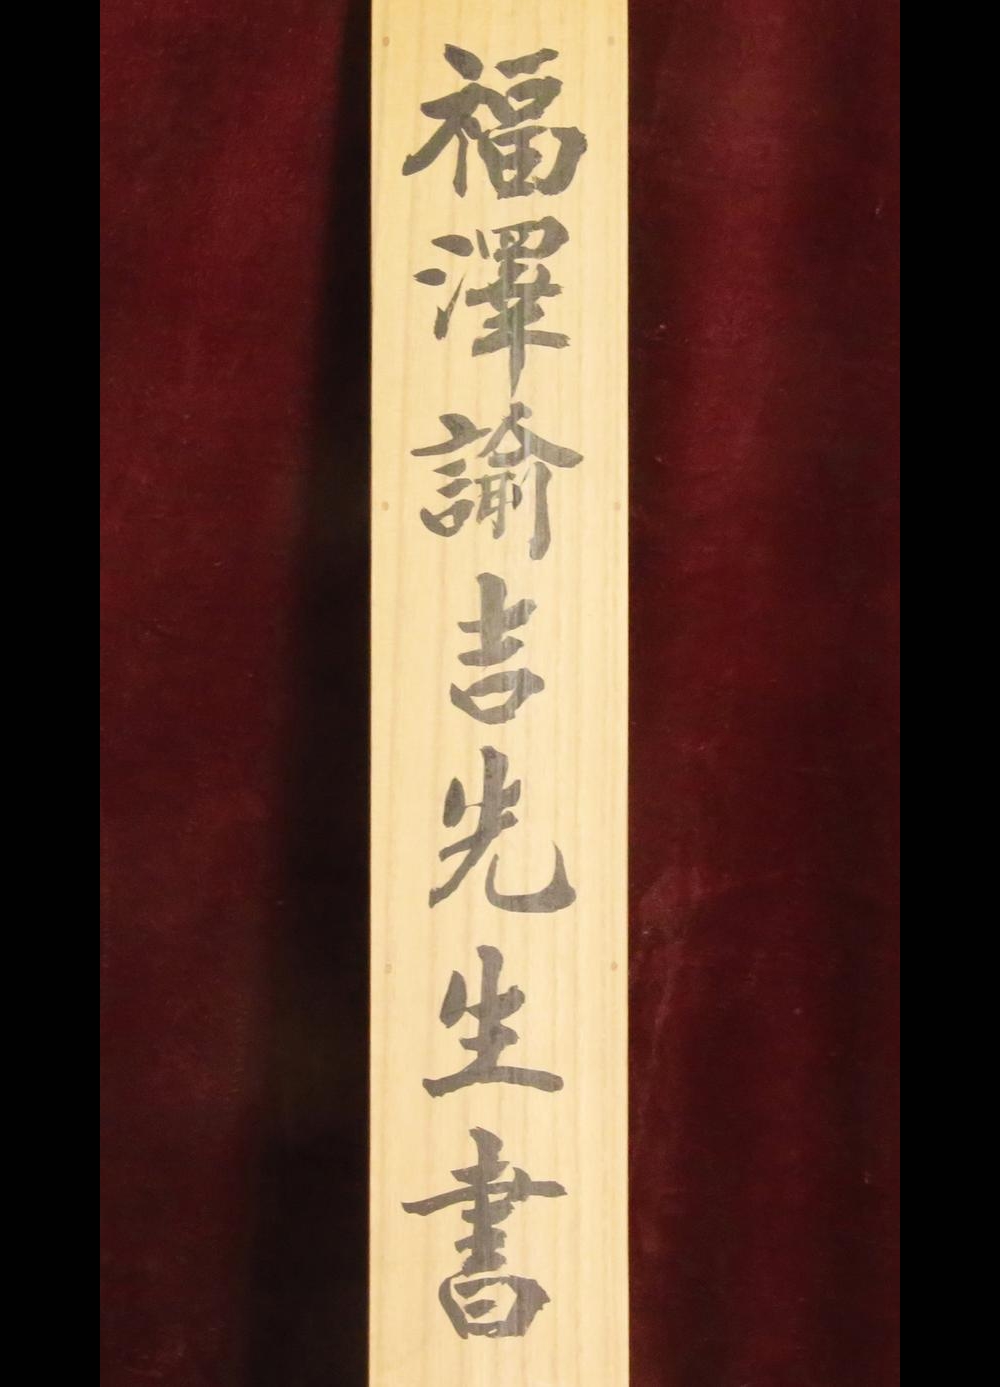 福澤諭吉先生書